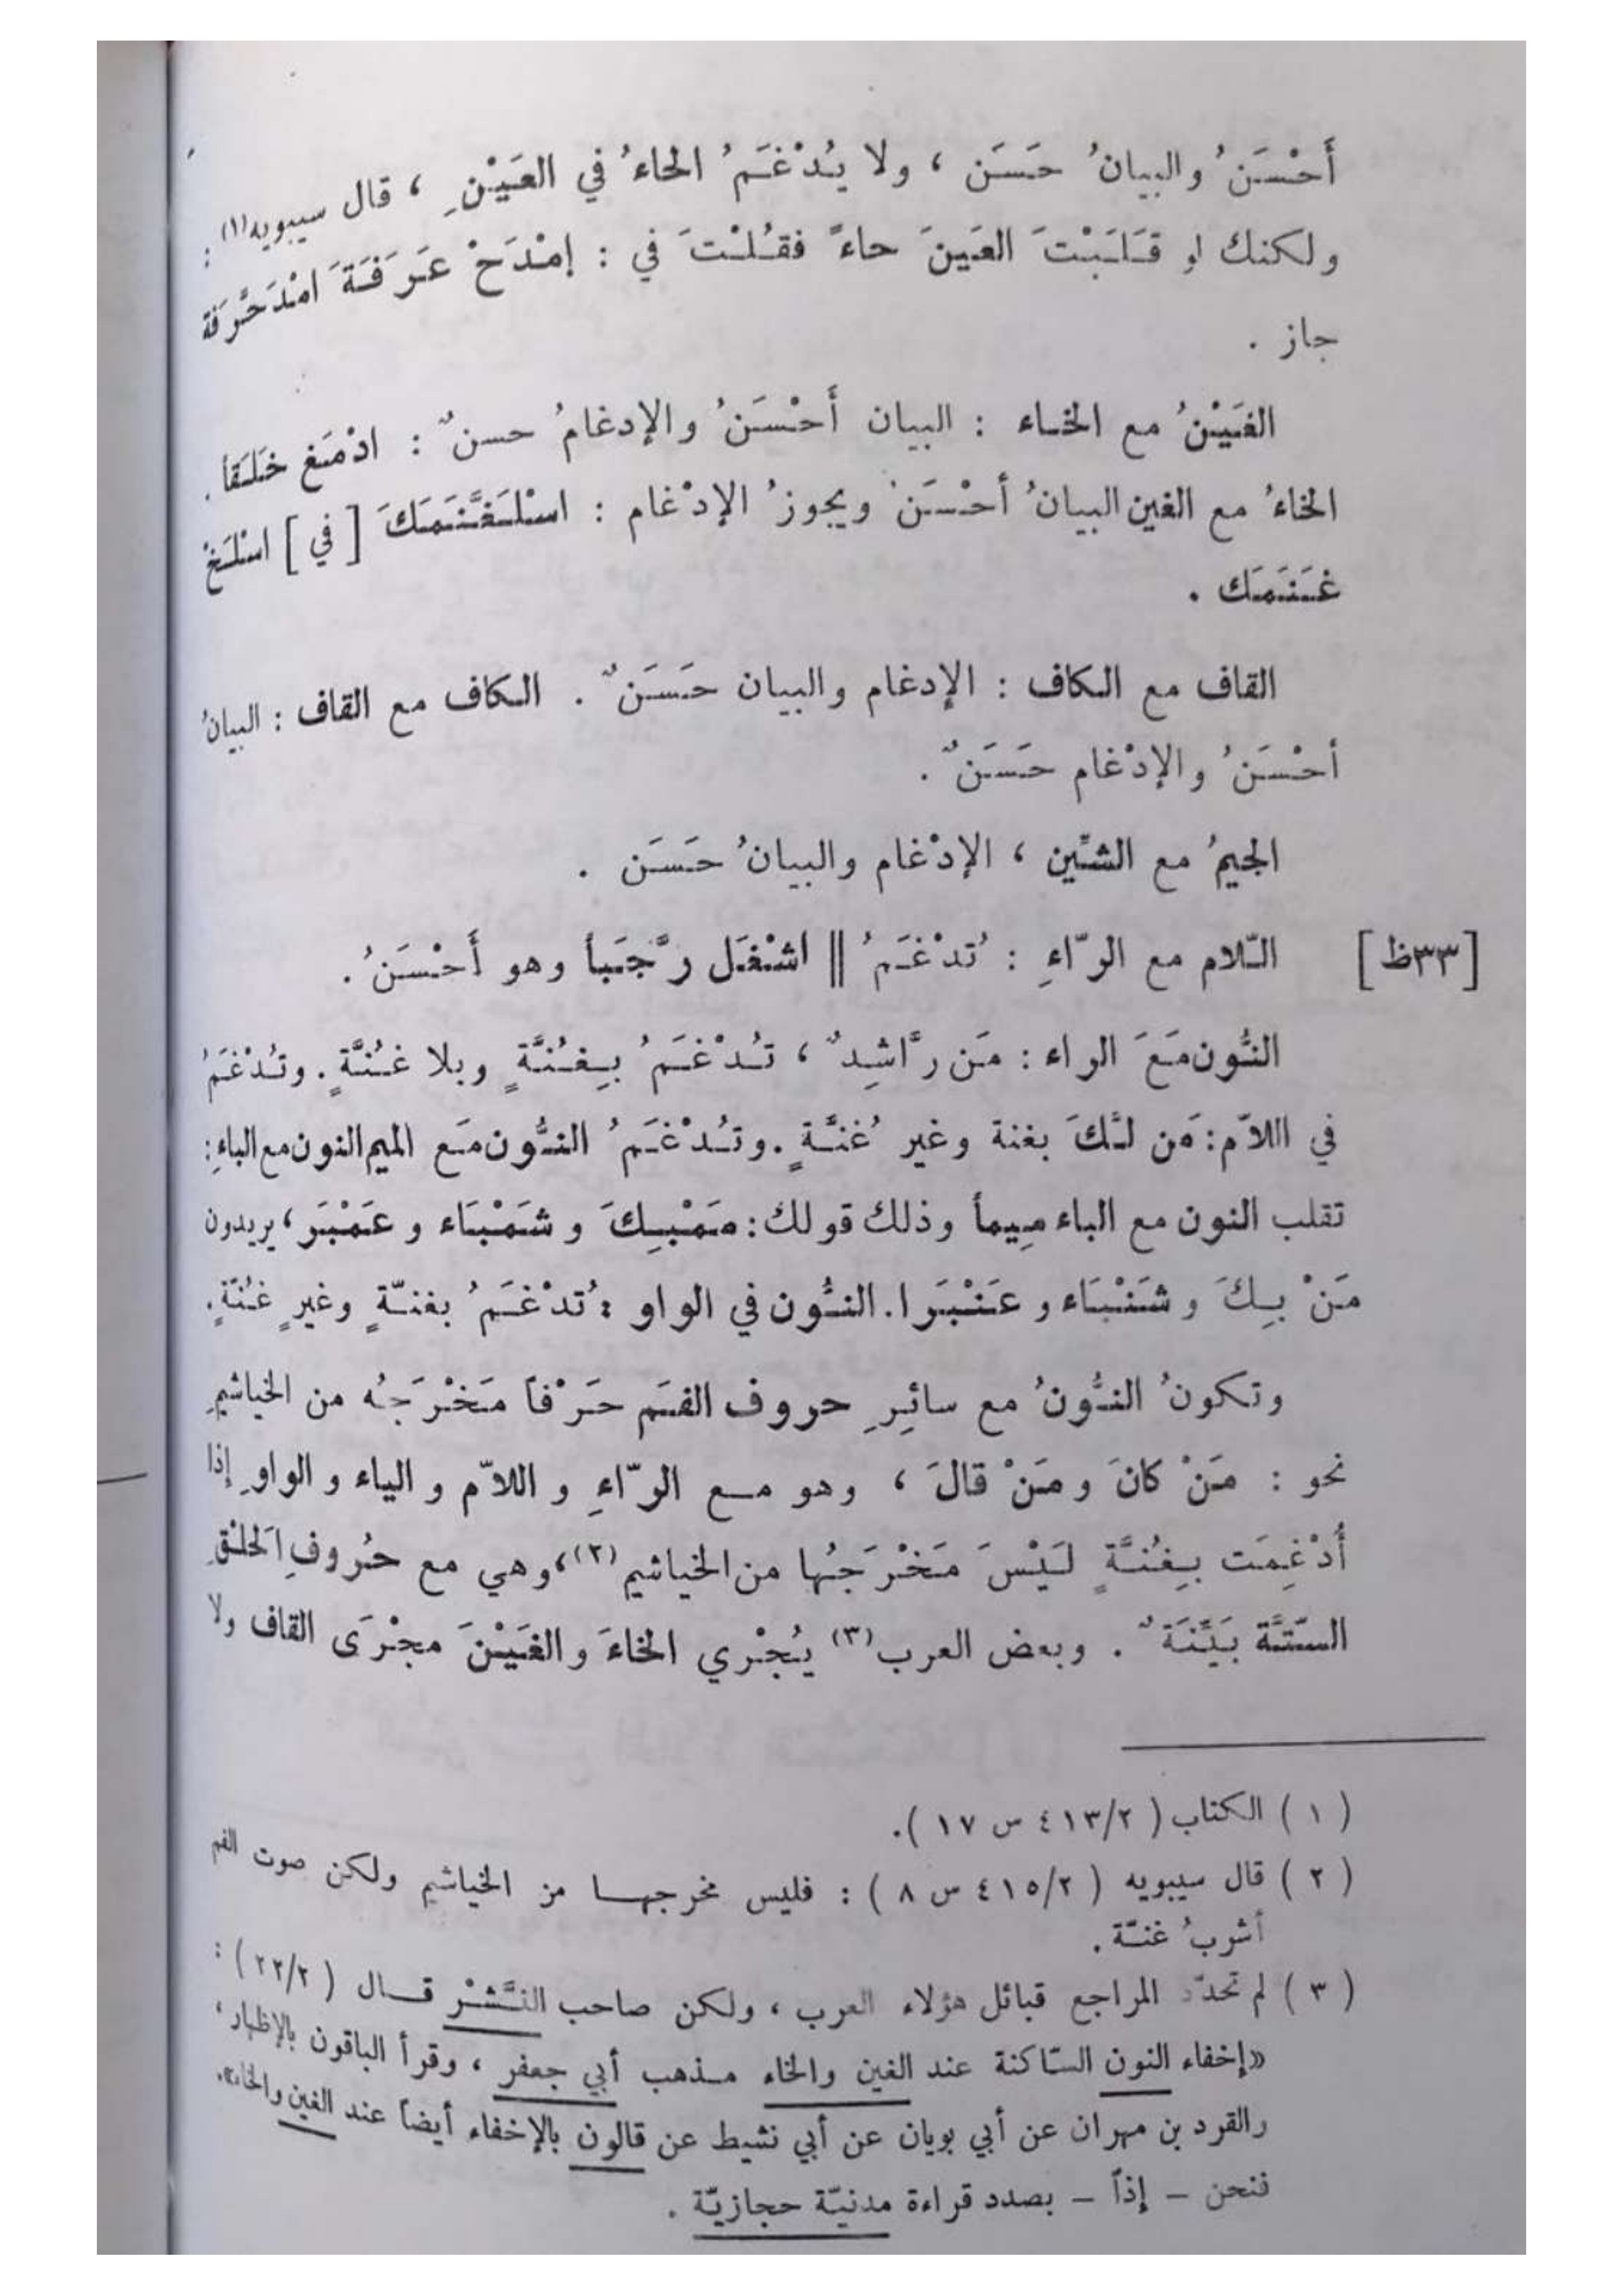 أَحْسَنُ والبيانُ حَسَن ، ولا يُدْغَمُ الحاءُ في العَيْنِ ، قال سيبويه(١) :
ولكنك لو قَلَبْتَ العَينَ حاءً فقُلْتَ في : إمْدَحْ عَرَفَةَ امْدَحَّرَفة
جاز .
الغَيْنُ مع الخاء : البيان أَحْسَنُ والإدغامُ حسنٌ : ادْمَغ خَلَقاً .
الخاءُ مع الغين البيانُ أحْسَنُ ويجوزُ الإدْغام : اسْلَغَّنَمَكَ [ في ] اسْلَخْ
غَنَمَك .
القاف مع الكاف : الإدغام والبيان حَسَنٌ . الكاف مع القاف : البيانُ
أحْسَنُ والإدْغام حَسَنٌ .
الجيمُ مع الشّين ، الإدْغام والبيانُ حَسَن .
[٣٣ظ] اللّام مع الرّاءِ : تُدْغَمُ || اشْغَل رَّجَباً وهو أَحْسَنُ .
النُّون مَعَ الراء : مَن رَّاشِدٌ ، تُدْغَمُ بِغُنَّةٍ وبلا غُنَّةٍ . وتُدْغَمُ
في اللاّم : مَن لَّكَ بغنة وغير غُنَّةٍ . وتُدْغَمُ النُّون مَع الميم النون مع الباءِ :
تقلب النون مع الباء مِيماً وذلك قولك : مَمْبِكَ و شَمْبَاء و عَمْبَر ، يريدون
مَنْ بِكَ و شَنْبَاء و عَنْبَرا . النُّون في الواو : تُدْغَمُ بغنّةٍ وغيرِ غُنّةٍ .
وتكونُ النُّونُ مع سائِرِ حروف الفَم حَرْفاً مَخْرَجُه من الخياشيمِ
نحو : مَنْ كانَ و مَنْ قالَ ، وهو مع الرّاءِ و اللاّم و الياء و الواوِ إذا
أُدْغِمَت بِغُنَّةٍ لَيْسَ مَخْرَجُها من الخياشيم(٢) ، وهي مع حُروفِ الحَلْقِ
السّتَّة بَيِّنَةٌ . وبعض العرب(٣) يُجْري الخاءَ و الغَيْنَ مجْرَى القاف ولا
( ١ ) الكتاب ( ٤١٣/٢ س ١٧ ) .
( ٢ ) قال سيبويه ( ٤١٥/٢ س ٨ ) : فليس مخرجها من الخياشيم ولكن صوت الفم
أشربُ غنّة .
( ٣ ) لم تحدّد المراجع قبائل هؤلاء العرب ، ولكن صاحب النَّشْر قال ( ٢٢/٢ ) :
«إخفاء النون السّاكنة عند الغين والخاء مذهب أبي جعفر ، وقرأ الباقون بالإظهار ،
والقرد بن مهران عن أبي بويان عن أبي نشيط عن قالون بالإخفاء أيضاً عند الغين والخاء».
فنحن – إذاً – بصدد قراءة مدنيّة حجازيّة .